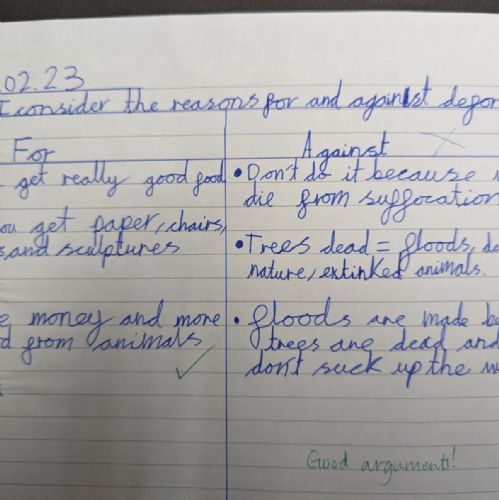 .02.23
I consider the reasons for and against defor
For
Against
get really good food
ou get paper, chairs,
s, and sculptures
e money and more
d from animals
• Don't do it because
die from suffocation
• Trees dead = floods, de
nature, extinked animals.
• floods are made be
trees are dead and
don't suck up the w
Good arguments!